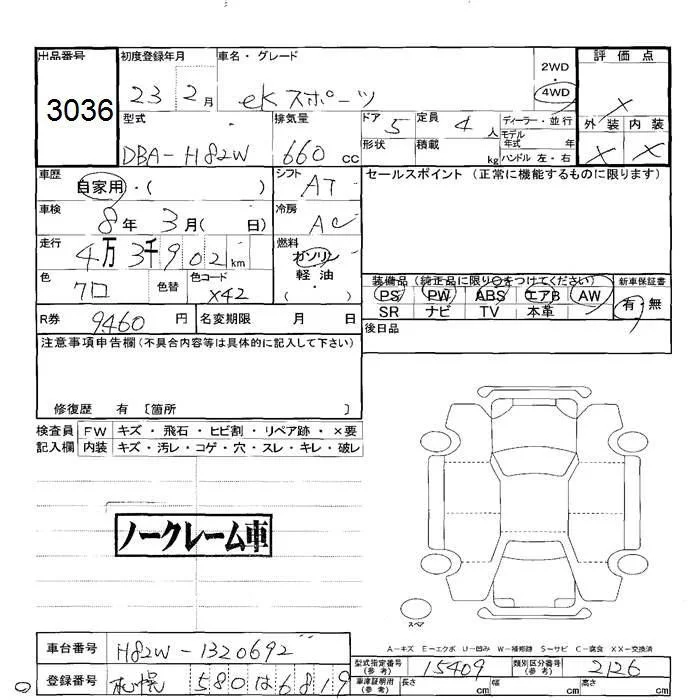 出品番号 初度登録年月 車名・グレード 2WD・4WD 評価点
3036 23 2月 eKスポーツ ×
型式 排気量 ドア 5 定員 4人 ディーラー・並行 外装 内装
DBA-H82W 660cc 形状 積載 kg モデル年式 年 × ×
ハンドル 左・右
車歴 自家用・( ) シフト AT セールスポイント(正常に機能するものに限ります)
車検 8年 3月( 日) 冷房 AC
走行 4万3千902km 燃料 ガソリン
軽油・( )
色 クロ 色替 色コード X42
装備品(純正品に限り○をつけてください) 新車保証書
PS PW ABS エアB AW 有・無
SR ナビ TV 本革
R券 9460円 名変期限 月 日 後日品
注意事項申告欄(不具合内容等は具体的に記入して下さい)
修復歴 有 〔箇所 〕
検査員 FW キズ・飛石・ヒビ割・リペア跡・×要
記入欄 内装 キズ・汚レ・コゲ・穴・スレ・キレ・破レ
ノークレーム車
スペア
A-キズ E-エクボ U-凹み W-補修跡 S-サビ C-腐食 XX-交換済
車台番号 H82W-1320692 型式指定番号(参考) 15409 類別区分番号(参考) 2126
登録番号 札幌 580 は 6819 車庫証明用(参考) 長さ cm 幅 cm 高さ cm